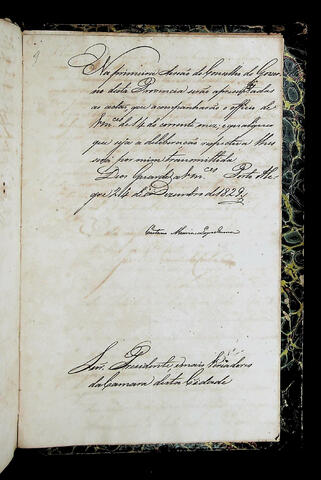 9
Na primeira Sessão do Conselho do Gover-
no desta Provincia serão aprezentadas
as actas, que acompanharão o officio de
Vm.ces de 14 do corrente mez; e qualquer
que seja a deliberação respectiva lhes
será por mim transmittida.
Deos Guarde a Vm.ces Porto Ale-
gre 24 de Dezembro de 1829
Caetano Maria Lopes Gama
Snr. Presidente, e mais Vereadores
da Camara desta Cidade